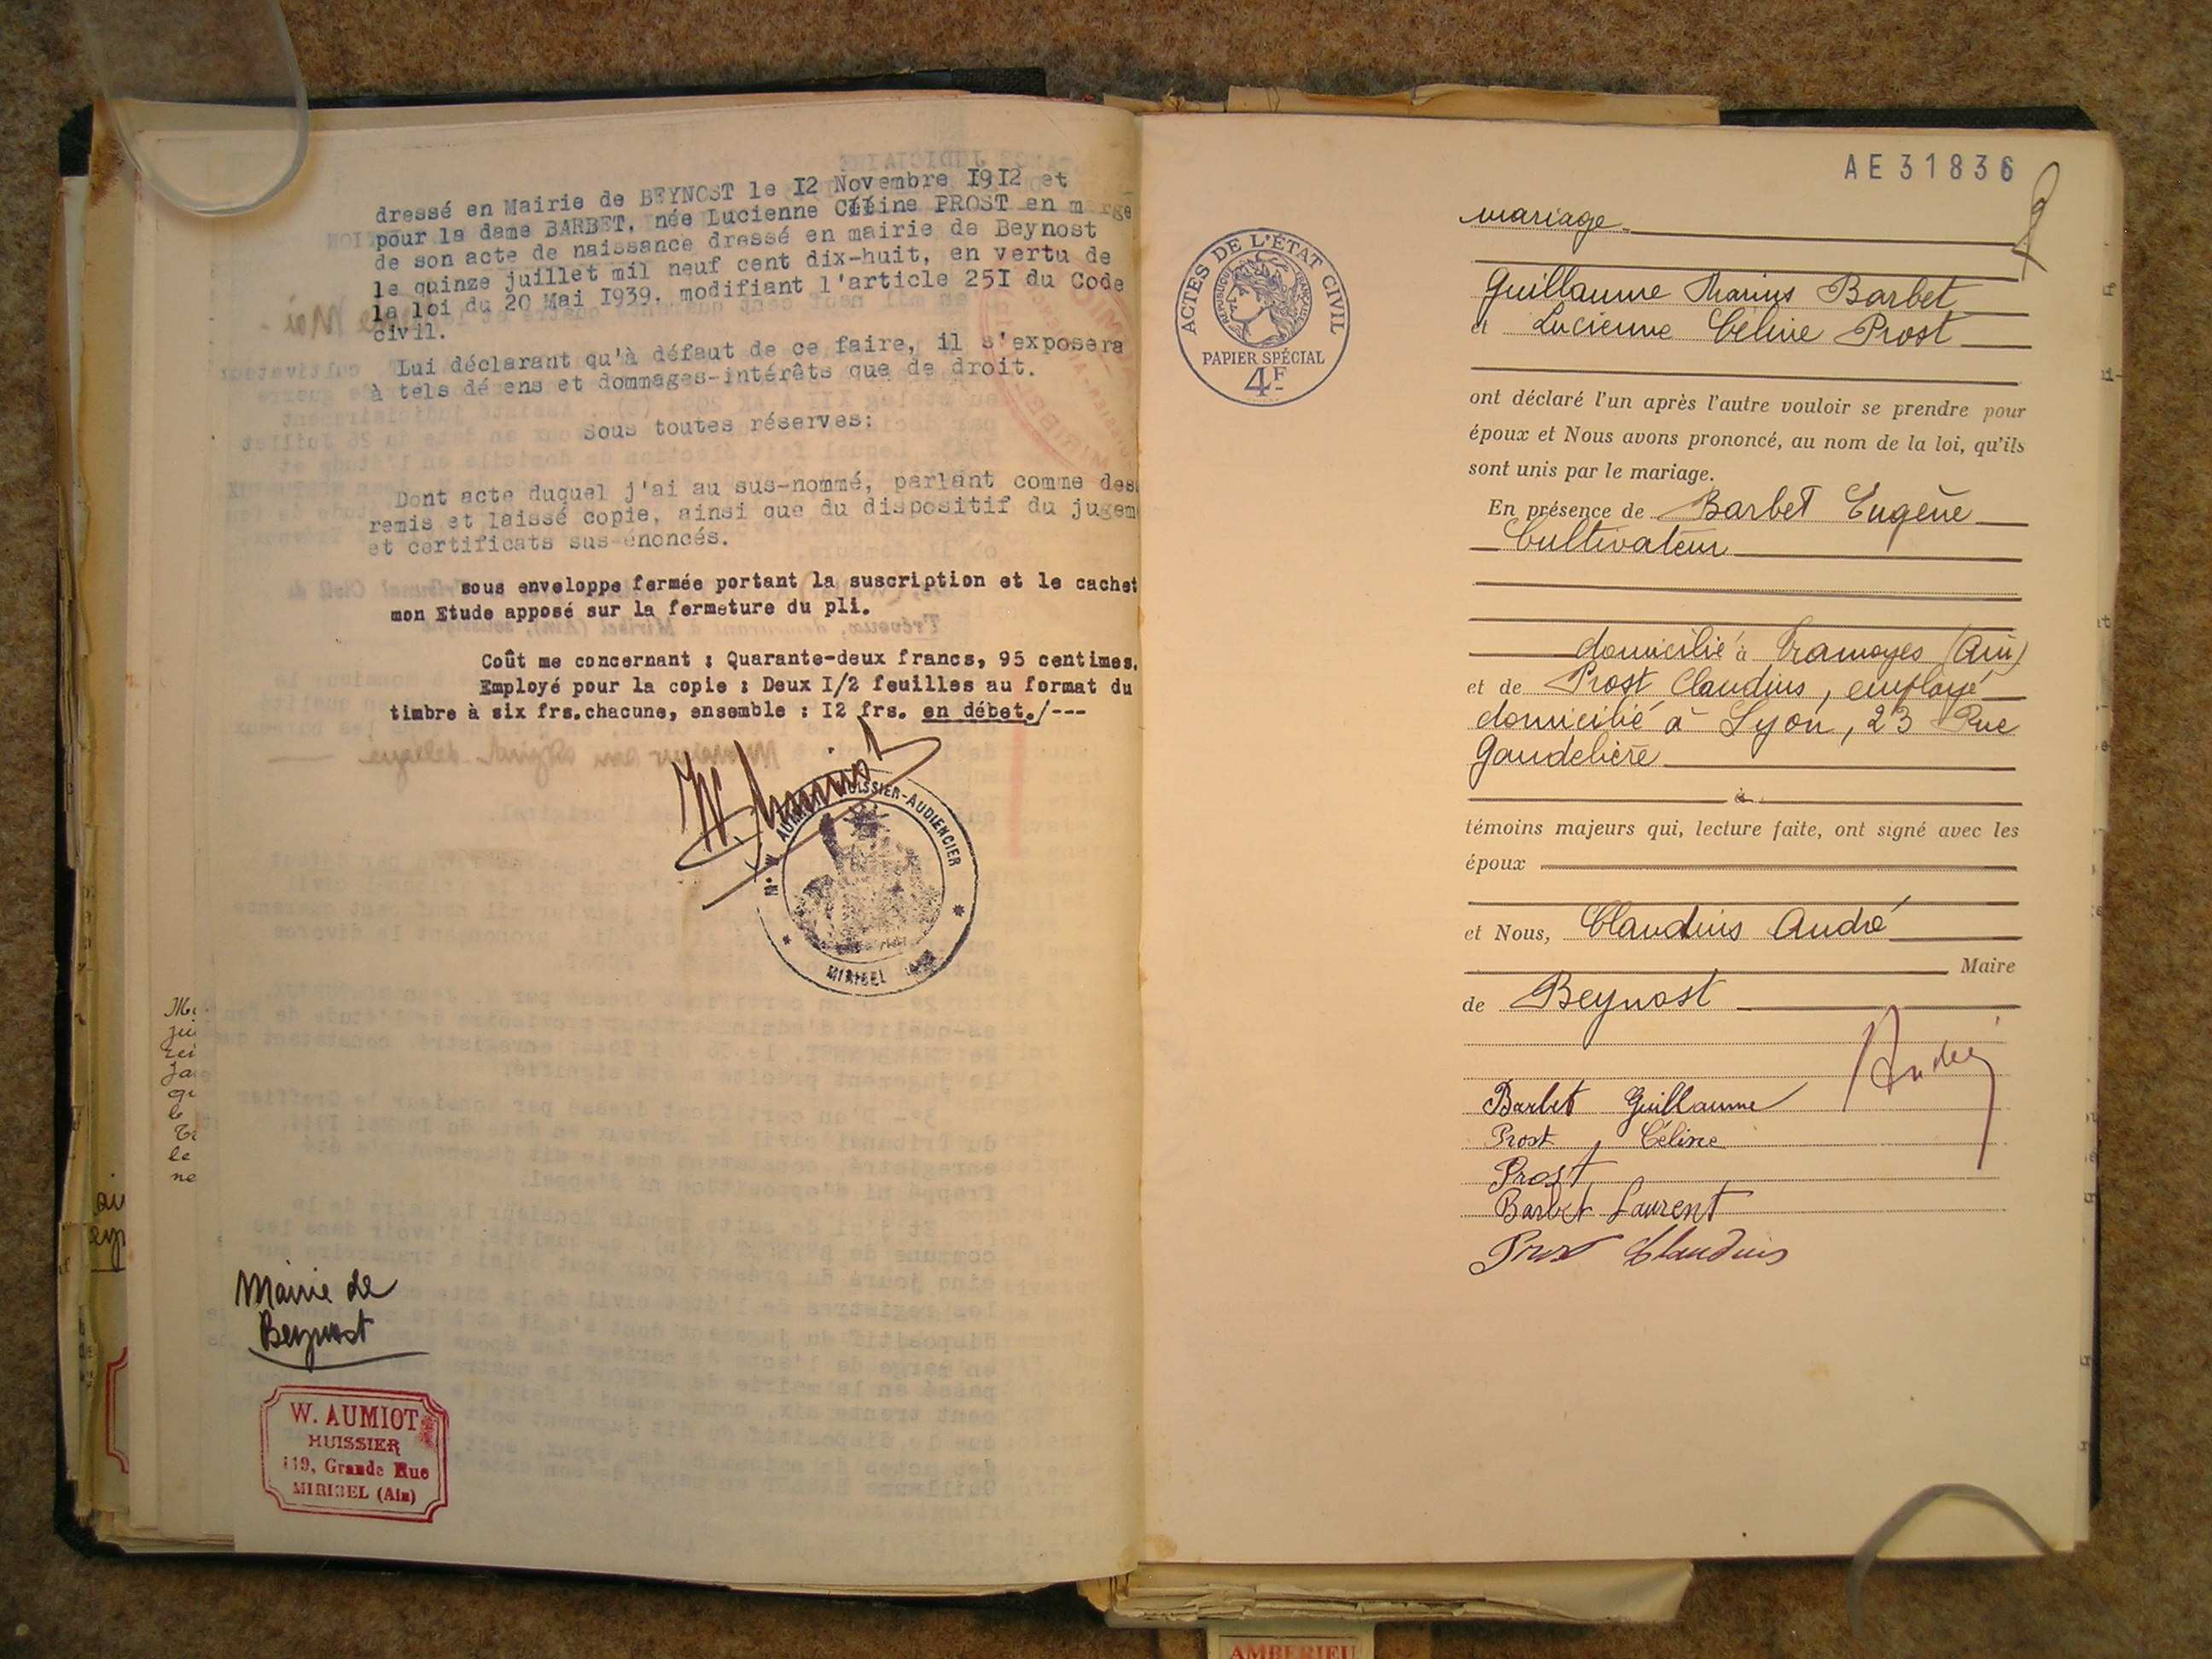 dressé en Mairie de BEYNOST le I2 Novembre I9I2 et
pour la dame BARBET, née Lucienne Céline PROST en marge
de son acte de naissance dressé en mairie de Beynost
le quinze juillet mil neuf cent dix-huit, en vertu de
la loi du 20 Mai I939. modifiant l'article 25I du Code
civil.
Lui déclarant qu'à défaut de ce faire, il s'exposera
à tels dé ens et dommages-intérêts que de droit.
Sous toutes réserves:
Dont acte duquel j'ai au sus-nommé, parlant comme des
remis et laissé copie, ainsi que du dispositif du jugem
et certificats sus-énoncés.
sous enveloppe fermée portant la suscription et le cachet
mon Etude apposé sur la fermeture du pli.
Coût me concernant : Quarante-deux francs, 95 centimes.
Employé pour la copie : Deux I/2 feuilles au format du
timbre à six frs.chacune, ensemble : I2 frs. en débet./---
HUISSIER-AUDIENCIER
MIRIBEL
Mairie de
Beynost
W. AUMIOT
HUISSIER
119, Grande Rue
MIRIBEL (Ain)
AE31836
ACTES DE L'ÉTAT CIVIL
REPUBLIQUE FRANÇAISE
PAPIER SPÉCIAL
4F
mariage
Guillaume Marius Barbet
et Lucienne Céline Prost
ont déclaré l'un après l'autre vouloir se prendre pour
époux et Nous avons prononcé, au nom de la loi, qu'ils
sont unis par le mariage.
En présence de Barbet Eugène
Cultivateur
domicilié à Tramoyes (Ain)
et de Prost Claudius, employé
domicilié à Lyon, 23 Rue
Gaudelière
à
témoins majeurs qui, lecture faite, ont signé avec les
époux
et Nous, Claudius André
Maire
de Beynost
André
Barbet Guillaume
Prost Céline
Prost
Barbet Laurent
Prost Claudius
AMBERIEU